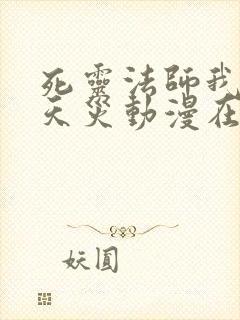 死靈法師我
天災動漫在
妖圓